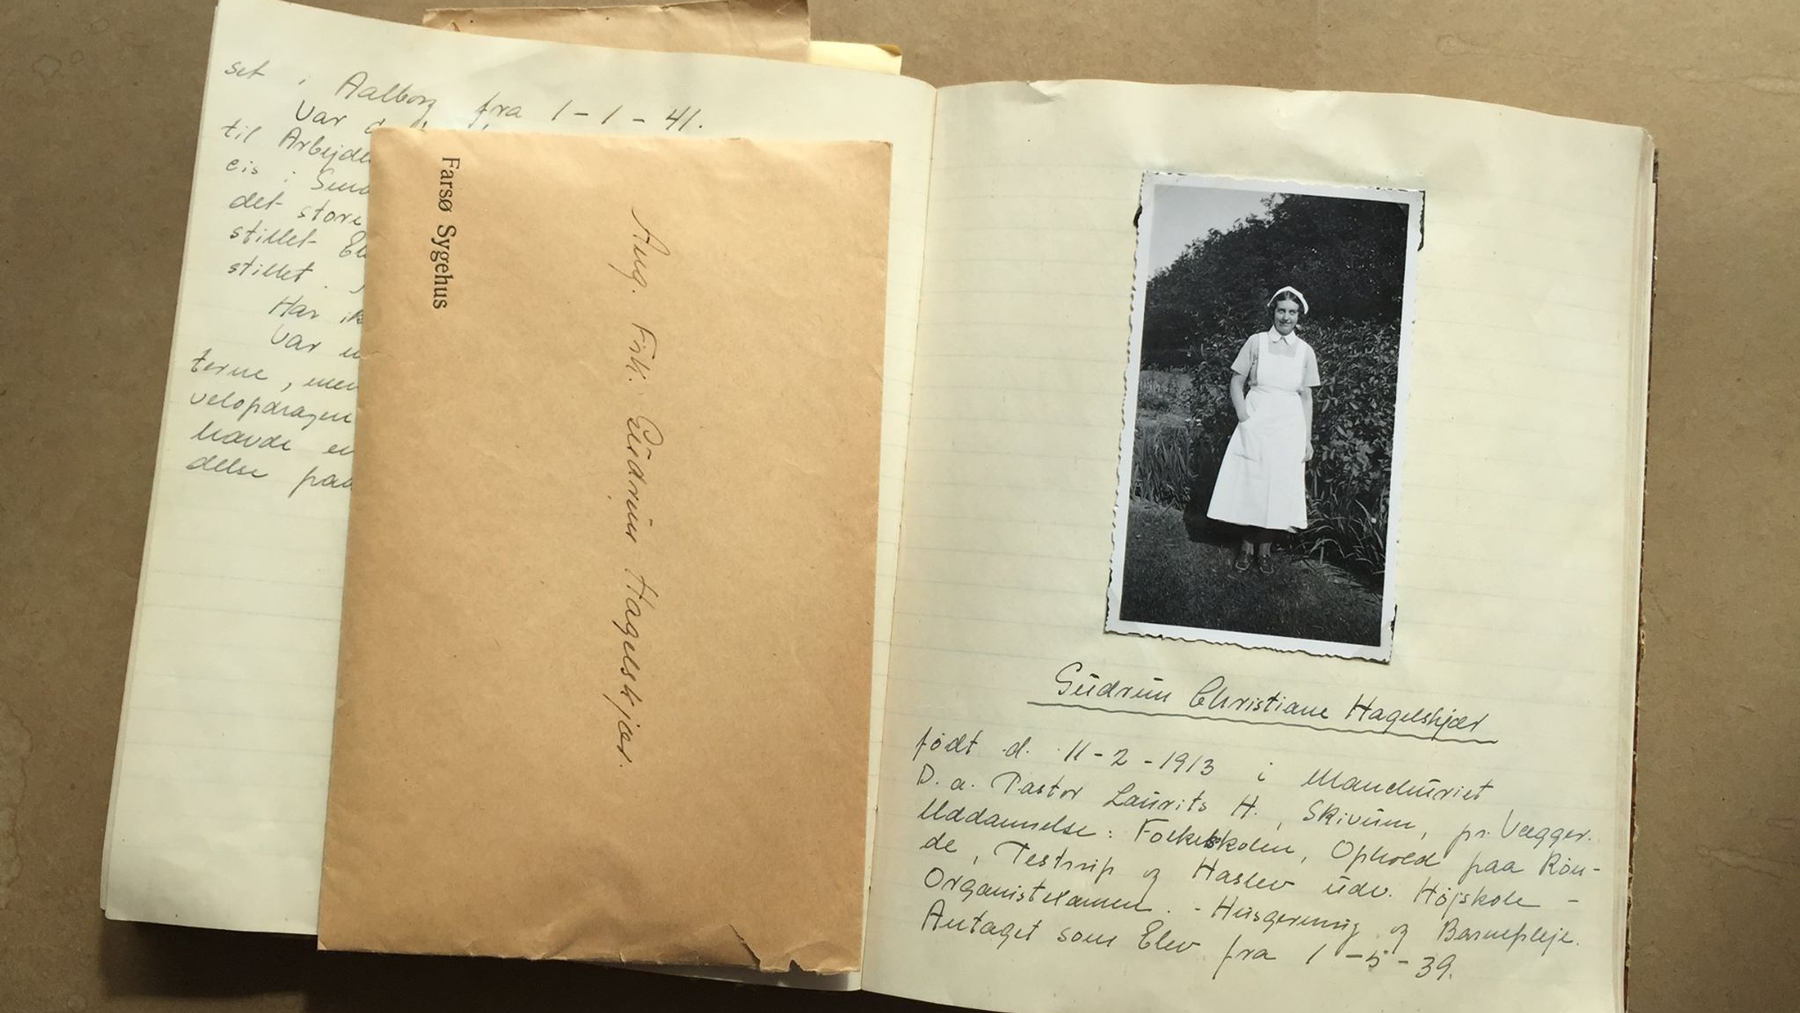 set i Aalborg fra 1-1-41.
Var
til Arbejde
eis i
det store
stillet
stillet.
Har ik
Var
terne, men
velopdragen
havde en
delse paa
Farsø Sygehus
Ang. Frk. Gudrun Hagelskjær.
Gudrun Christiane Hagelskjær
født d. 11-2-1913 i Manchuriet
D. a. Pastor Laurits H., Skivum, pr. Vegger.
Uddannelse: Folkeskolen, Ophold paa Røn-
de, Testrup og Haslev udv. Højskole -
Organisteksamen. - Husgerning og Barnepleje.
Antaget som Elev fra 1-5-39.